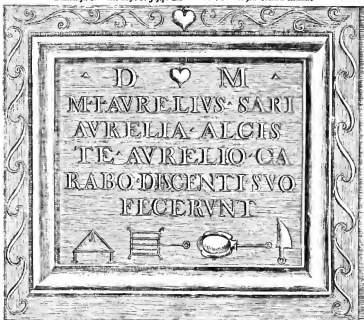 D M
M·I·AVRELIVS·SARI
AVRELIA·ALCIS
TE·AVRELIO·CA
RABO·DISCENTI SVO
FECERVNT